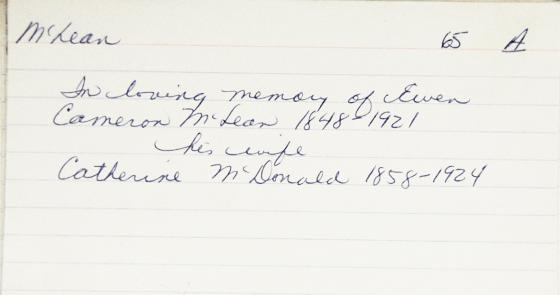 McLean 65 A
In loving memory of Ewen
Cameron McLean 1848-1921
his wife
Catherine McDonald 1858-1924